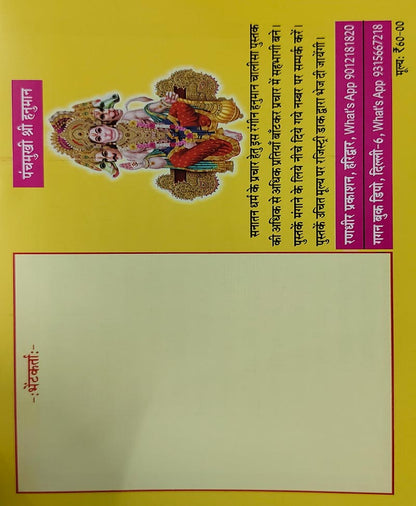 पंचमुखी श्री हनुमान
सनातन धर्म के प्रचार हेतु इस रंगीन हनुमान चालीसा पुस्तक
की अधिक से अधिक प्रतियाँ बाँटकर प्रचार में सहभागी बनें।
पुस्तकें मंगाने के लिये नीचे दिये गये नम्बर पर सम्पर्क करें।
पुस्तकें उचित मूल्य पर रजिस्ट्री डाक द्वारा भेज दी जायेंगी।
रणधीर प्रकाशन, हरिद्वार, What's App 9012181820
गगन बुक डिपो, दिल्ली-6, What's App 9315667218
मूल्य: ₹60-00
-:भेंटकर्ता:-